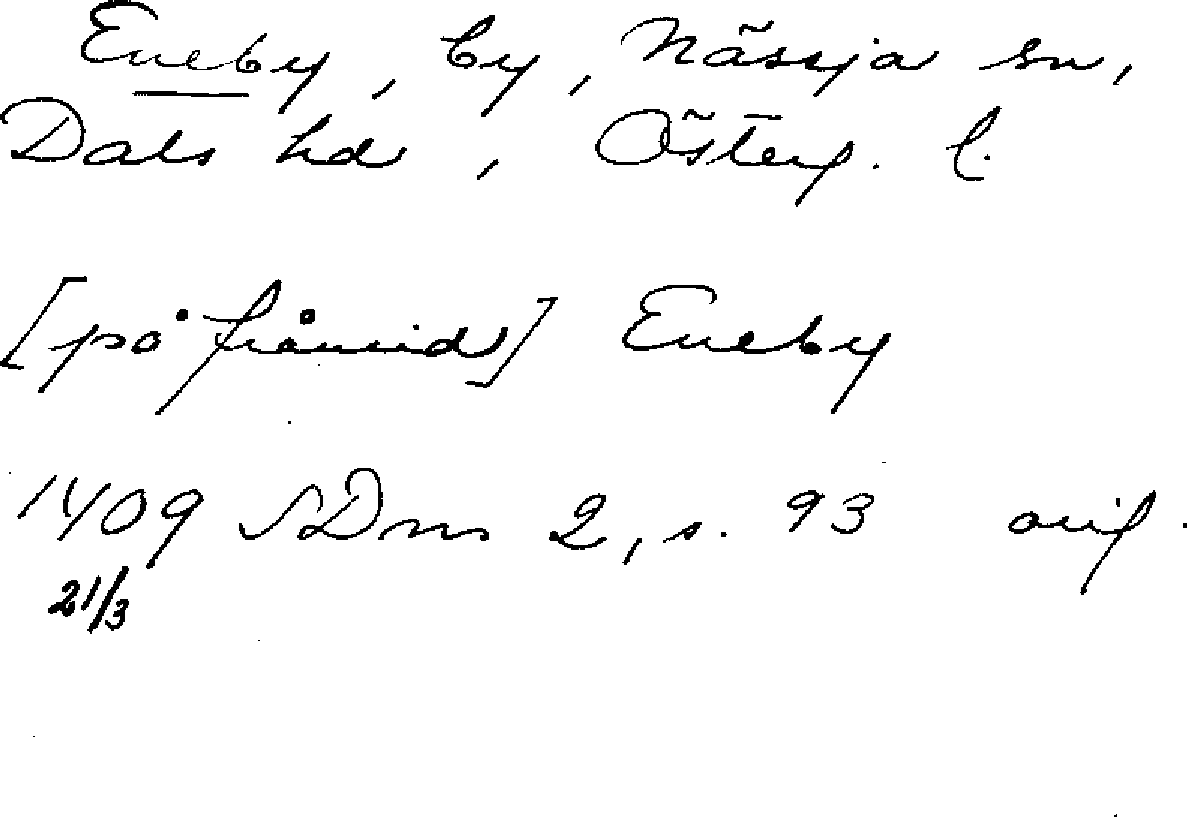 Eneby, by, Nässja sn,
Dals hd, Österg. l.
[på frånsid] Eneby
1409 SDns 2, s. 93 orig.
21/3